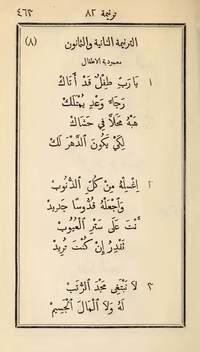 ترنيمة ٨٢ ٤٦٣
الترنيمة الثانية والثمانون (٨)
معمودية الاطفال
١ يَا رَبِّ طِفْلٌ قَدْ أَتَاكْ
رَجَاءَ وَعْدٍ يُمْتَلَكْ
هَبْهُ مَحَلًّا فِي حَشَاكْ
لِكَيْ يَكُونَ ٱلدَّهْرَ لَكْ
٢ إِغْسِلْهُ مِنْ كُلِّ ٱلذُّنُوبْ
وَٱجْعَلْهُ قُدُّوسًا جَدِيدْ
أَنْتَ عَلَى سَتْرِ ٱلْعُيُوبْ
تَقْدِرُ إِنْ كُنْتَ تُرِيدْ
٣ لَا نَبْتَغِي مَجْدَ ٱلرُّتَبْ
لَهُ وَلَا ٱلْمَالَ ٱلْجَسِيمْ